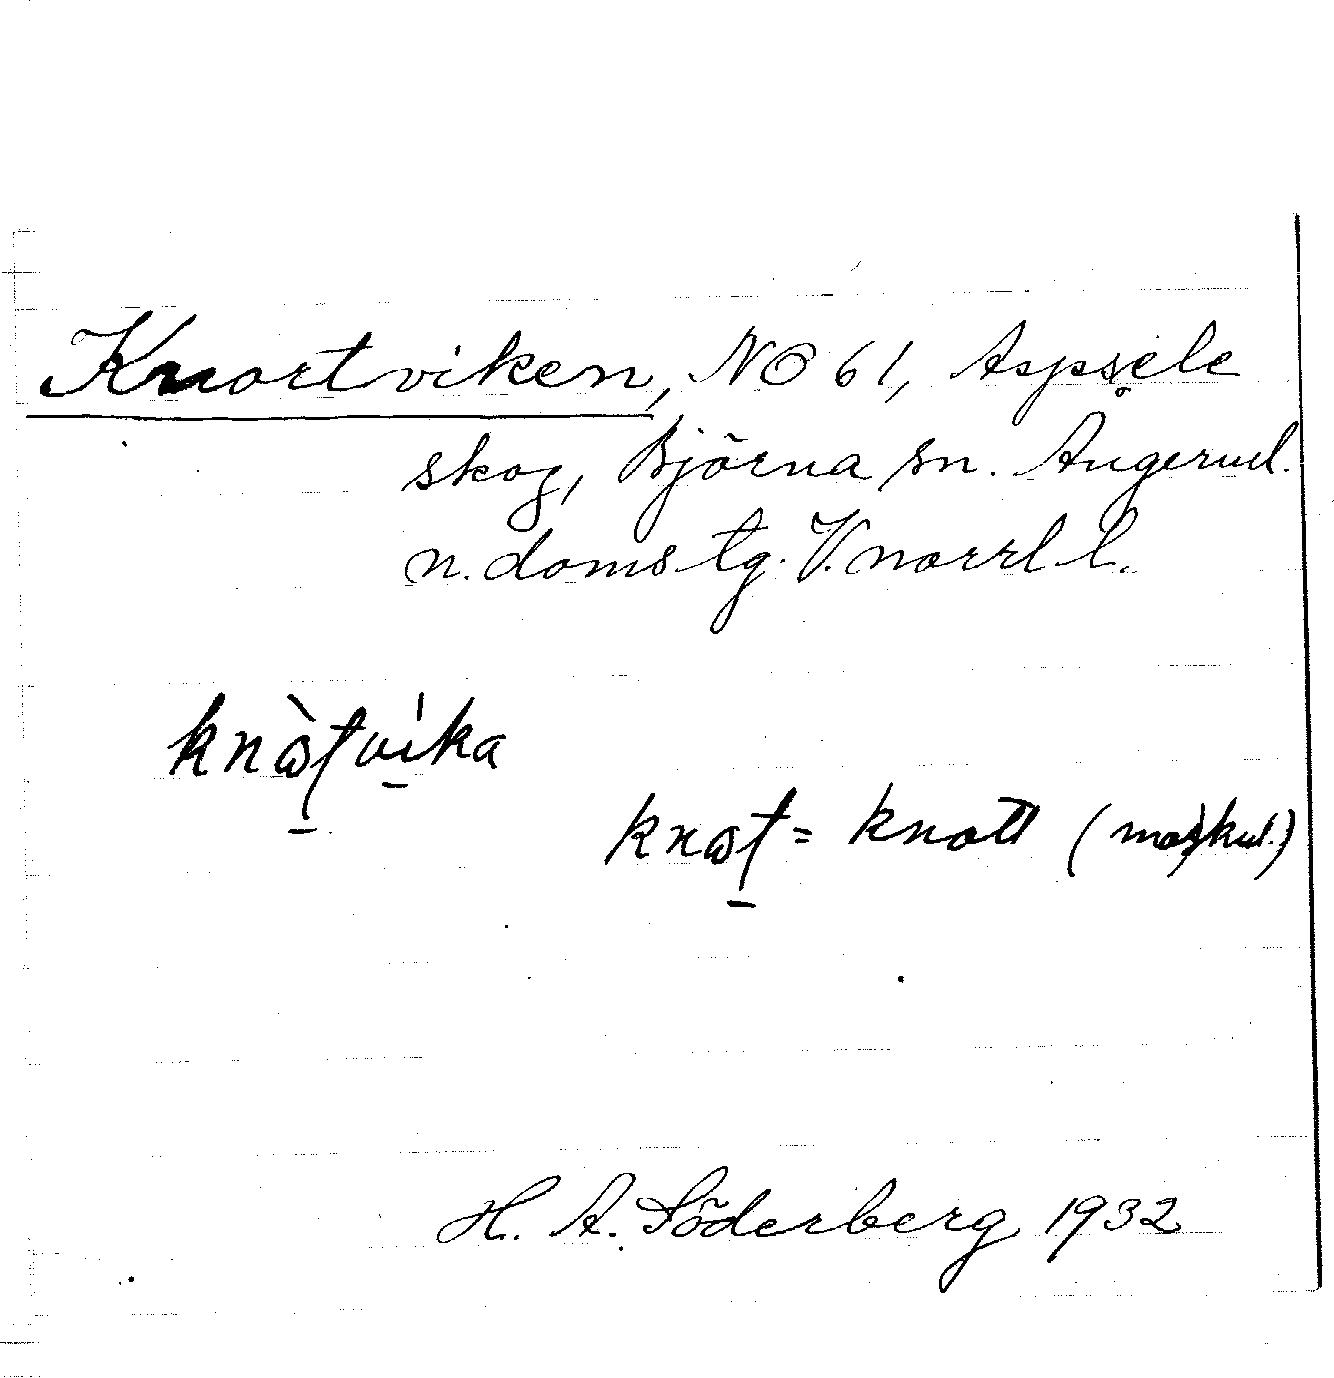 Knortviken, NO 61, Aspsele
skog, Björna sn. Ångerml.
n. domstg. V.norrl l.
knòʈvi̱ka
knoʈ = knott (maskul.)
H. A. Söderberg 1932